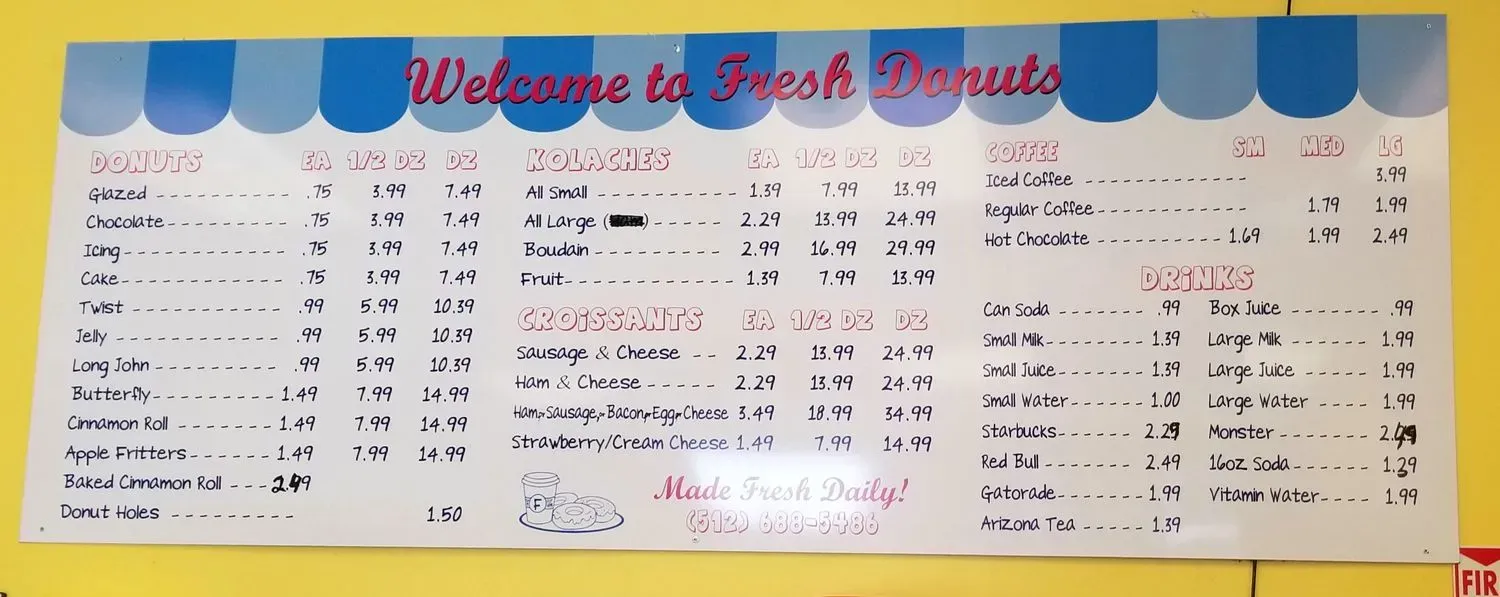 Welcome to Fresh Donuts
DONUTS EA 1/2 DZ DZ
Glazed .75 3.99 7.49
Chocolate .75 3.99 7.49
Icing .75 3.99 7.49
Cake .75 3.99 7.49
Twist .99 5.99 10.39
Jelly .99 5.99 10.39
Long John .99 5.99 10.39
Butterfly 1.49 7.99 14.99
Cinnamon Roll 1.49 7.99 14.99
Apple Fritters 1.49 7.99 14.99
Baked Cinnamon Roll 2.49
Donut Holes 1.50
KOLACHES EA 1/2 DZ DZ
All Small 1.39 7.99 13.99
All Large 2.29 13.99 24.99
Boudain 2.99 16.99 29.99
Fruit 1.39 7.99 13.99
CROiSSANTS EA 1/2 DZ DZ
Sausage & Cheese 2.29 13.99 24.99
Ham & Cheese 2.29 13.99 24.99
Ham or Sausage, or Bacon, Egg Cheese 3.49 18.99 34.99
Strawberry/Cream Cheese 1.49 7.99 14.99
Made Fresh Daily!
(512) 688-5486
F
COFFEE SM MED LG
Iced Coffee 3.99
Regular Coffee 1.79 1.99
Hot Chocolate 1.69 1.99 2.49
DRiNKS
Can Soda .99
Small Milk 1.39
Small Juice 1.39
Small Water 1.00
Starbucks 2.29
Red Bull 2.49
Gatorade 1.99
Arizona Tea 1.39
Box Juice .99
Large Milk 1.99
Large Juice 1.99
Large Water 1.99
Monster
16oz Soda 1.39
Vitamin Water 1.99
FIR